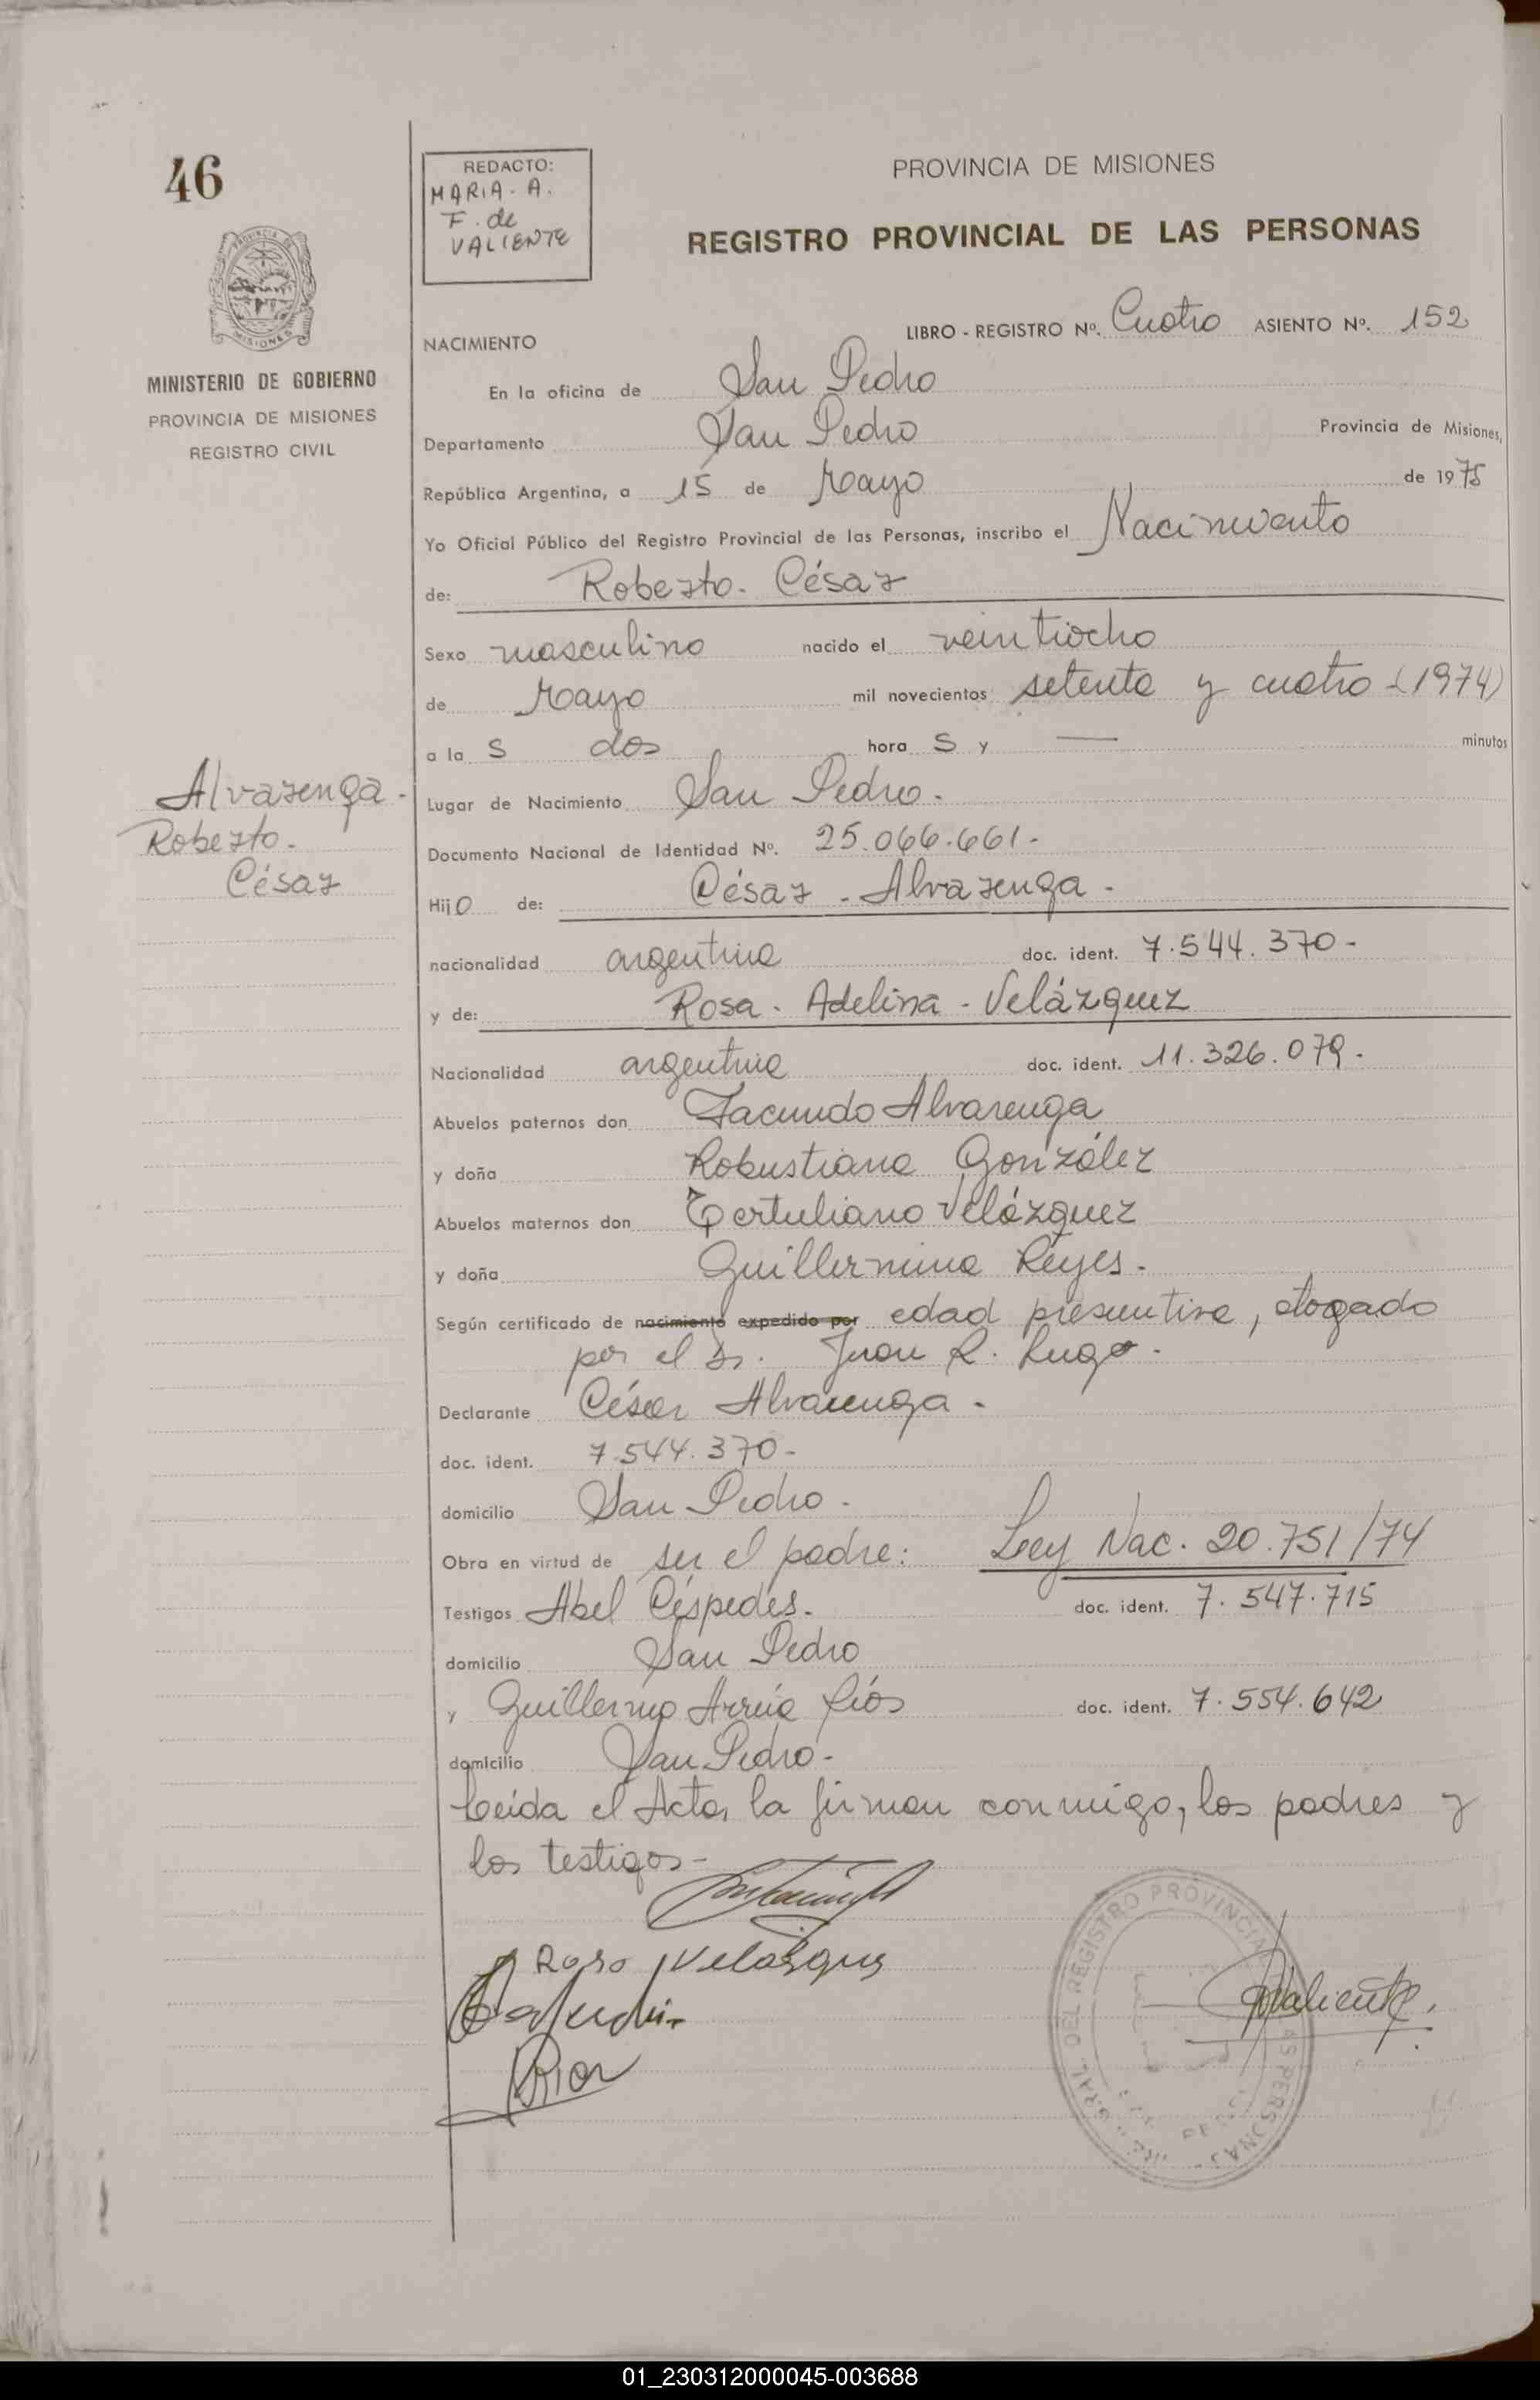 46
REDACTO:
MARIA. A.
F. de
VALIENTE
PROVINCIA DE MISIONES
REGISTRO PROVINCIAL DE LAS PERSONAS
MINISTERIO DE GOBIERNO
PROVINCIA DE MISIONES
REGISTRO CIVIL
LIBRO - REGISTRO Nº. Cuatro ASIENTO Nº. 152
NACIMIENTO
En la oficina de San Pedro
Departamento San Pedro Provincia de Misiones,
República Argentina, a 15 de Mayo de 1975
Yo Oficial Público del Registro Provincial de las Personas, inscribo el Nacimiento
de: Roberto. César
Sexo masculino nacido el veintiocho
de Mayo mil novecientos setenta y cuatro (1974)
a la s dos hora s y — minutos
Alvarenga.
Roberto.
César
Lugar de Nacimiento San Pedro.
Documento Nacional de Identidad Nº. 25.066.661.-
Hijo de: César - Alvarenga -
nacionalidad argentina doc. ident. 7.544.370-
y de: Rosa - Adelina - Velázquez
Nacionalidad argentina doc. ident. 11.326.079.-
Abuelos paternos don Facundo Alvarenga
y doña Robustiana González
Abuelos maternos don Tertuliano Velázquez
y doña Guillermina Reyes.
Según certificado de nacimiento expedido por edad presuntiva, otogado
por el Dr. Juan R. Lugo.
Declarante César Alvarenga -
doc. ident. 7.544.370-
domicilio San Pedro.
Obra en virtud de ser el padre: Ley Nac. 20.751/74
Testigos Abel Céspedes. doc. ident. 7.547.715
domicilio San Pedro
y Guillermo Arrúa Ríos doc. ident. 7.554.642
domicilio San Pedro-
Leída el Acta, la firman conmigo, los padres y
los testigos-
Rosa Velasques
Valiente.
DEL REGISTRO PROVINCIAL
01_230312000045-003688